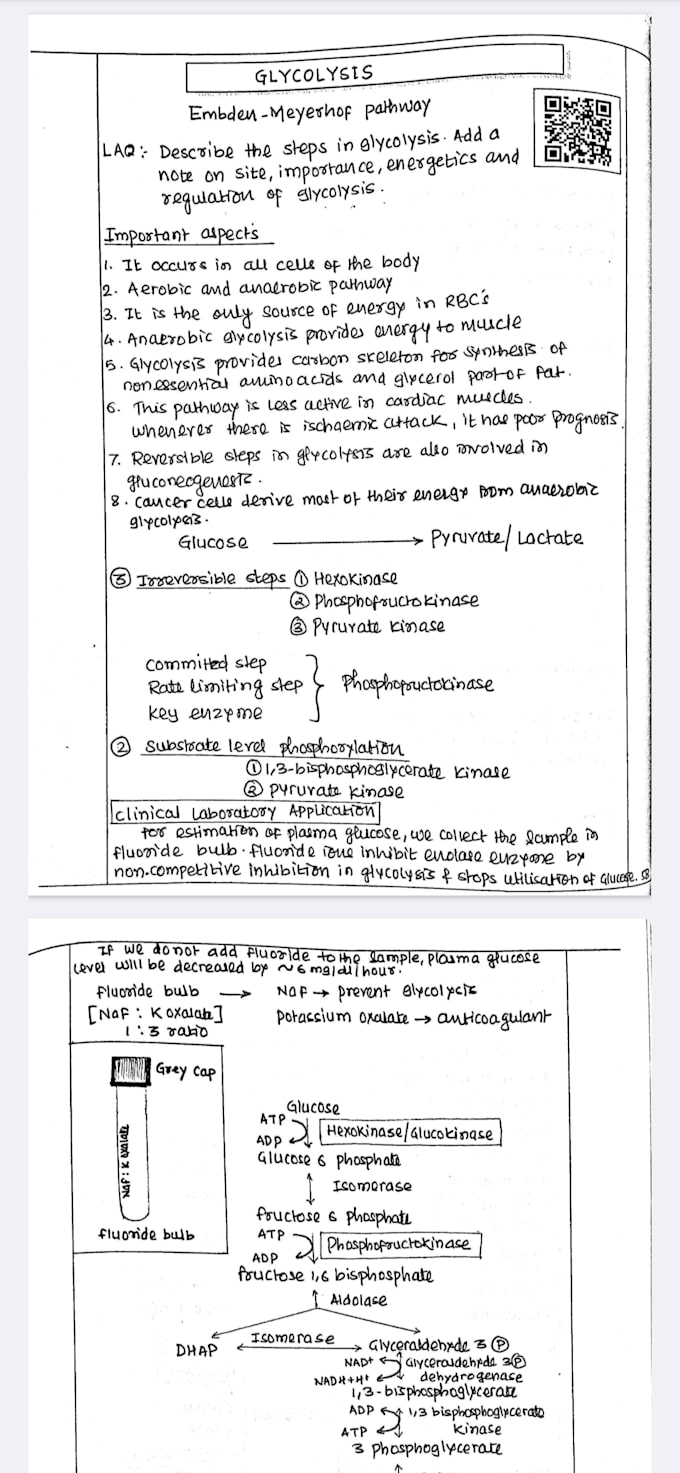 GLYCOLYSIS
Embden-Meyerhof pathway
LAQ:- Describe the steps in glycolysis. Add a
note on site, importance, energetics and
regulation of glycolysis.
Important aspects
1. It occurs in all cells of the body
2. Aerobic and anaerobic pathway
3. It is the only source of energy in RBC's
4. Anaerobic glycolysis provides energy to muscle
5. Glycolysis provides carbon skeleton for synthesis of
nonessential aminoacids and glycerol part of fat.
6. This pathway is less active in cardiac muscles.
whenever there is ischaemic attack, it has poor prognosis.
7. Reversible steps in glycolysis are also involved in
gluconeogenesis.
8. Cancer cells derive most of their energy from anaerobic
glycolysis.
Glucose → Pyruvate/Lactate
③ Irreversible steps ① Hexokinase
② Phosphofructokinase
③ Pyruvate kinase
Committed step
Rate limiting step } Phosphofructokinase
Key enzyme
② Substrate level phosphorylation
① 1,3-bisphosphoglycerate kinase
② Pyruvate kinase
Clinical Laboratory Application
For estimation of plasma glucose, we collect the sample in
fluoride bulb. Fluoride ions inhibit enolase enzyme by
non-competitive inhibition in glycolysis & stops utilisation of Glucose.
If we donot add fluoride to the sample, plasma glucose
level will be decreased by ~6 mg/dl/hour.
Fluoride bulb → NaF → prevent glycolysis
[NaF : K oxalate] Potassium oxalate → anticoagulant
1 : 3 ratio
Grey cap
NaF : K oxalate
fluoride bulb
Glucose
ATP
ADP Hexokinase/Glucokinase
Glucose 6 phosphate
Isomerase
fructose 6 phosphate
ATP
ADP Phosphofructokinase
fructose 1,6 bisphosphate
Aldolase
DHAP Isomerase Glyceraldehyde 3 Ⓟ
NAD+ Glyceraldehyde 3Ⓟ
NADH+H+ dehydrogenase
1,3-bisphosphoglycerate
ADP 1,3 bisphosphoglycerate
ATP kinase
3 phosphoglycerate